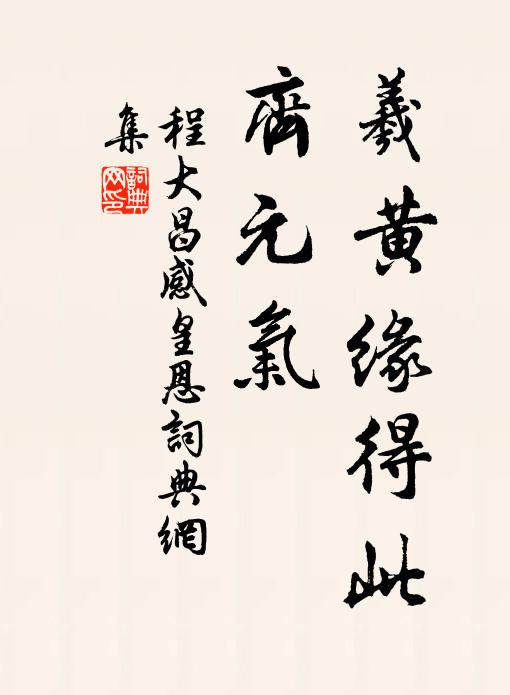 羲黄緣得此
齊元氣
程大昌感皇恩詞典網
集
詞典網印